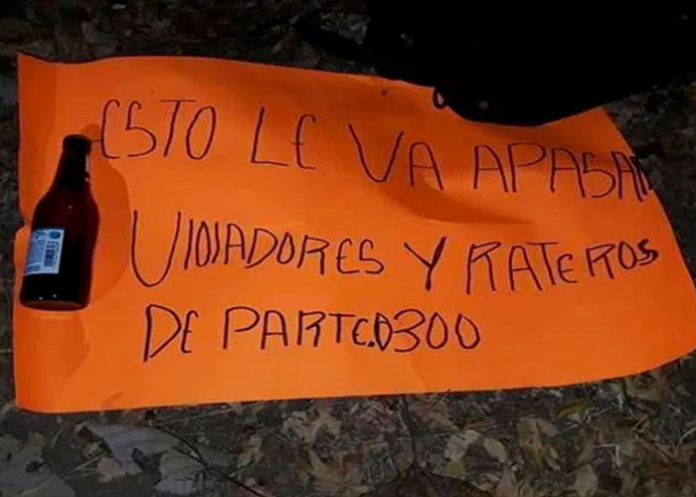 ESTO LE VA APASAR
VIOLADORES Y RATEROS
DE PARTE.D300